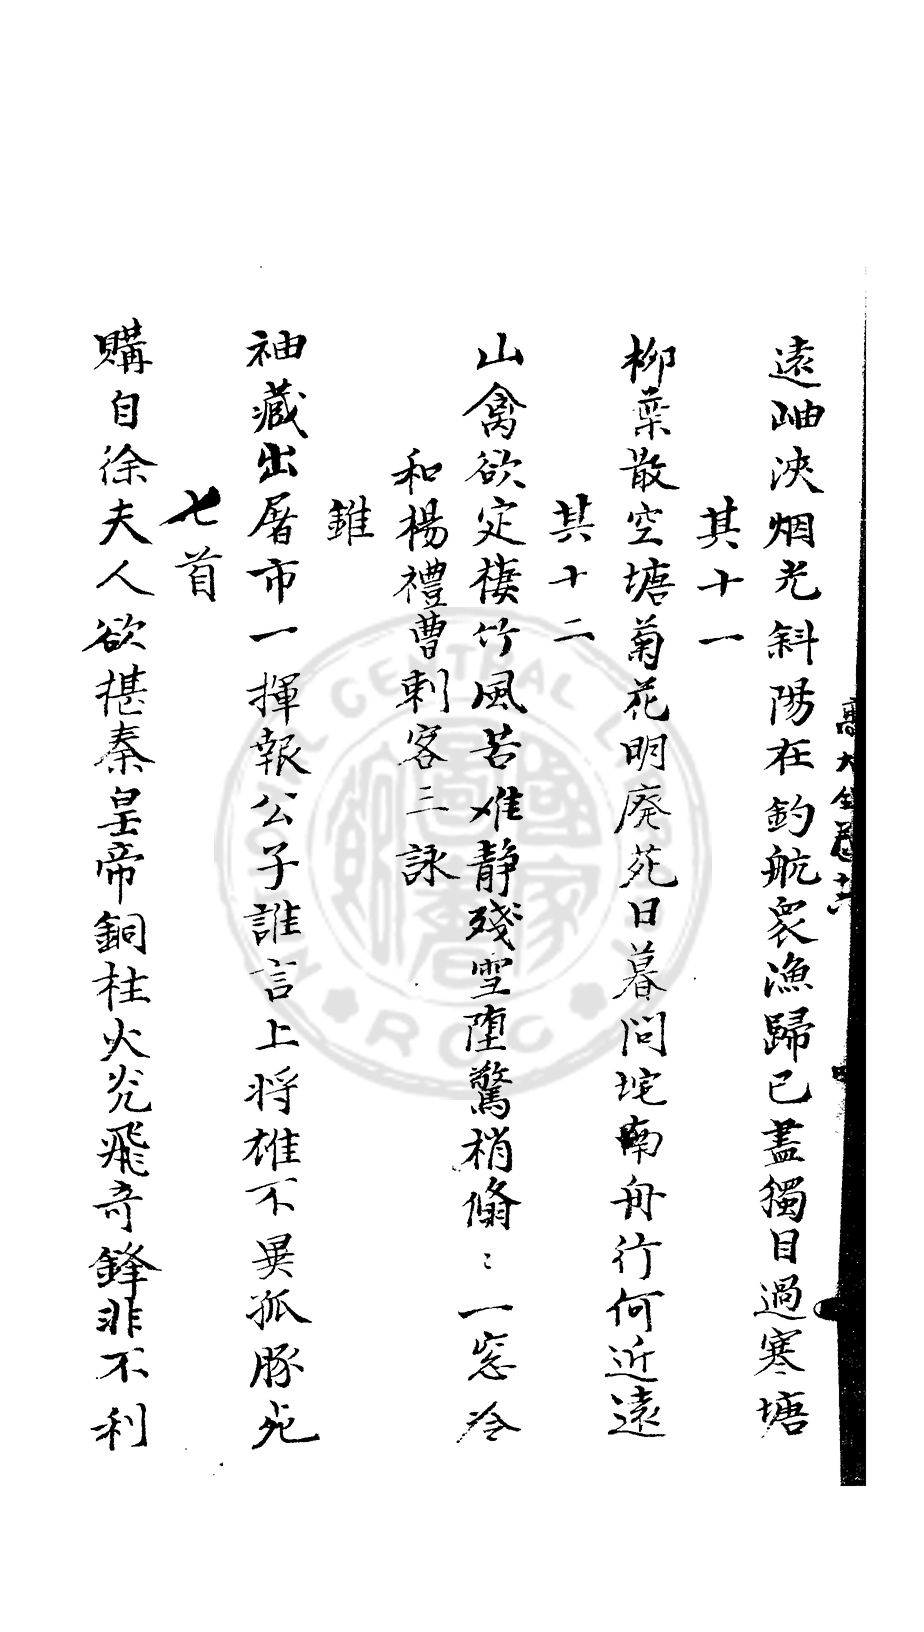 遠岫泱烟光斜陽在釣航衆漁歸已盡獨目過寒塘
其十一
柳葉散空塘菊花明廢苑日暮問垞南舟行何近遠
其十二
山禽欲定棲竹風苦难静殘雪堕驚梢翛〻一窓冷
和楊禮曹刺客三詠
錐
袖藏出屠市一揮報公子誰言上将雄不異孤豚死
匕首
購自徐夫人欲揕秦皇帝銅柱火光飛奇鋒非不利
NATIONAL CENTRAL LIBRARY ROC
國家圖書館